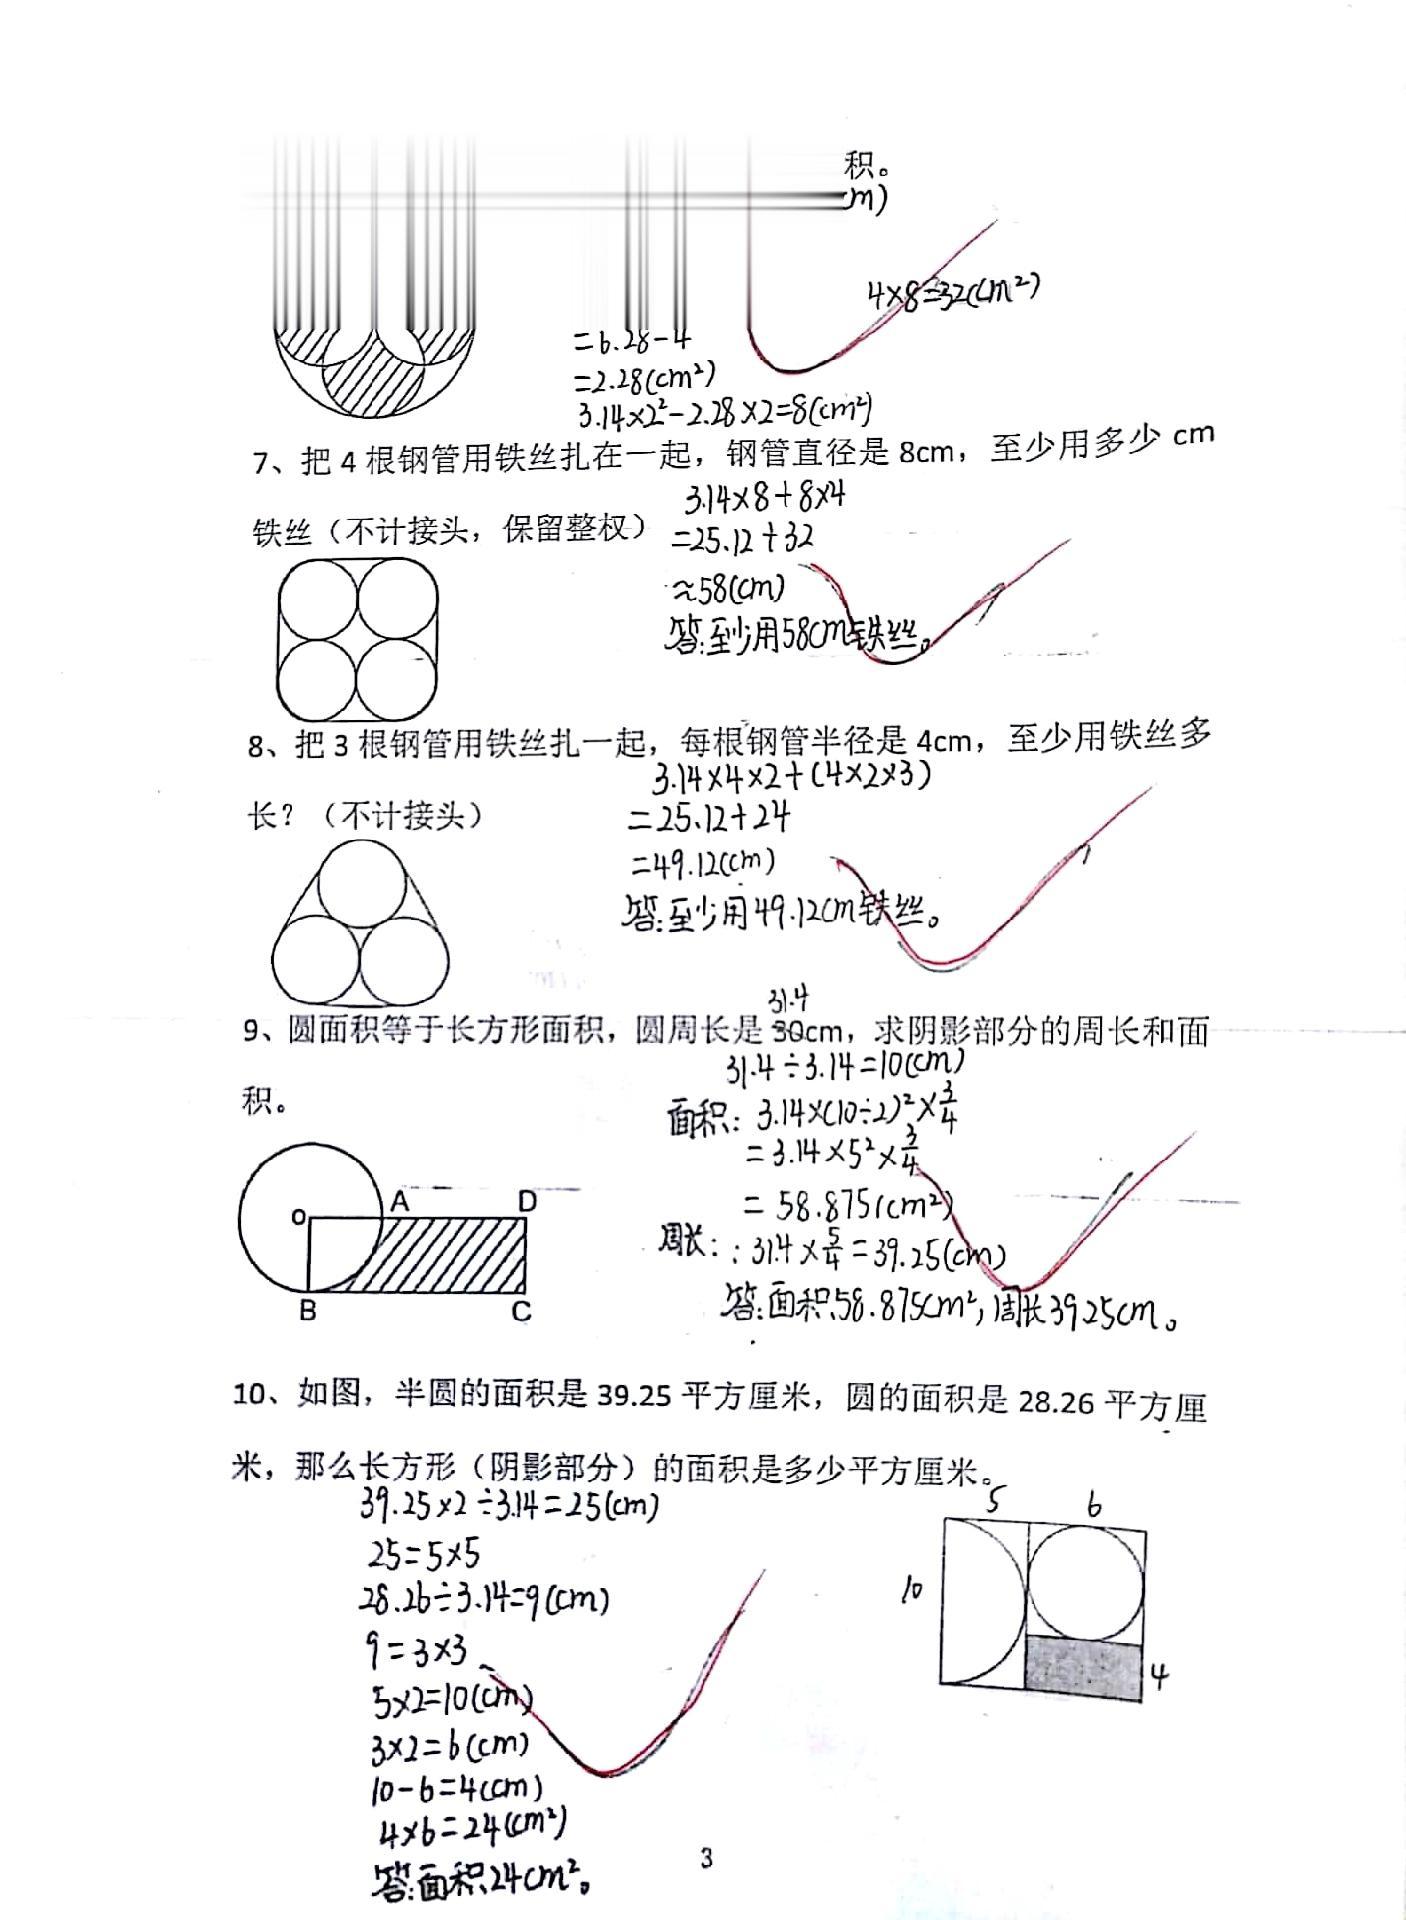 积。
m)
4×8=32(cm²)
=6.28-4
=2.28(cm²)
3.14×2²-2.28×2=8(cm²)
7、把 4 根钢管用铁丝扎在一起，钢管直径是 8cm，至少用多少 cm
3.14×8+8×4
铁丝（不计接头，保留整权）
=25.12+32
≈58(cm)
答:至少用58cm铁丝。
8、把 3 根钢管用铁丝扎一起，每根钢管半径是 4cm，至少用铁丝多
3.14×4×2+(4×2×3)
长？（不计接头）
=25.12+24
=49.12(cm)
答:至少用49.12cm铁丝。
31.4
9、圆面积等于长方形面积，圆周长是 30cm，求阴影部分的周长和面
31.4÷3.14=10(cm)
积。
面积: 3.14×(10÷2)²×3/4
=3.14×5²×3/4
= 58.875(cm²)
周长: :31.4×5/4=39.25(cm)
答:面积58.875cm²,周长39.25cm。
A D
O
B C
10、如图，半圆的面积是 39.25 平方厘米，圆的面积是 28.26 平方厘
米，那么长方形（阴影部分）的面积是多少平方厘米。
39.25×2÷3.14=25(cm)
25=5×5
28.26÷3.14=9(cm)
9=3×3
5×2=10(cm)
3×2=6(cm)
10-6=4(cm)
4×6=24(cm²)
答:面积24cm²。
5 6
10
4
3